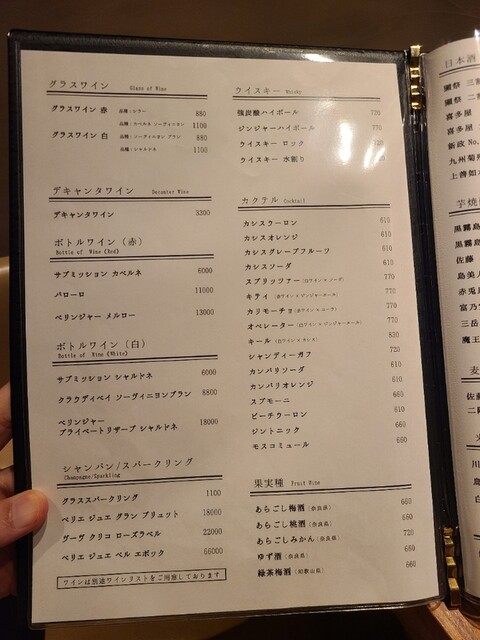 グラスワイン Glass of Wine
グラスワイン 赤 品種：シラー 880
品種：カベルネ ソーヴィニヨン 1100
グラスワイン 白 品種：ソーヴィニヨン ブラン 880
品種：シャルドネ 1100
デキャンタワイン Decanter Wine
デキャンタワイン 3300
ボトルワイン（赤）
Bottle of Wine《Red》
サブミッション カベルネ 6000
バローロ 11000
ベリンジャー メルロー 13000
ボトルワイン（白）
Bottle of Wine《White》
サブミッション シャルドネ 6000
クラウディベイ ソーヴィニヨンブラン 8800
ベリンジャー
プライベートリザーブ シャルドネ 18000
シャンパン/スパークリング
Champagne/Sparkling
グラススパークリング 1100
ペリエ ジュエ グラン ブリュット 18000
ヴーヴ クリコ ローズラベル 22000
ペリエ ジュエ ベル エポック 66000
ワインは別途ワインリストをご用意しております
ウイスキー Whisky
強炭酸ハイボール 770
ジンジャーハイボール 770
ウイスキー ロック 720
ウイスキー 水割り
カクテル Cocktail
カシスウーロン 610
カシスオレンジ 610
カシスグレープフルーツ 610
カシスソーダ 610
スプリッツァー（白ワイン×ソーダ） 770
キティ（赤ワイン×ジンジャーエール） 770
カリモーチョ（赤ワイン×コーラ） 770
オペレーター（白ワイン×ジンジャーエール） 770
キール（白ワイン×カシス） 830
シャンディーガフ 720
カンパリソーダ 610
カンパリオレンジ 610
スプモーニ 660
ピーチウーロン 610
ジントニック 660
モスコミュール 660
果実種 Fruit Wine
あらごし梅酒（奈良県） 660
あらごし桃酒（奈良県） 660
あらごしみかん（奈良県） 660
ゆず酒（奈良県） 660
緑茶梅酒（和歌山県） 660
日本酒
獺祭 三割
獺祭 二割
喜多屋
喜多屋
新政 No.
九州菊
上善如
芋焼
黒霧島
黒霧島
佐藤
島美人
赤兎馬
富乃宝
三岳
魔王
麦
佐
二
川
島
白